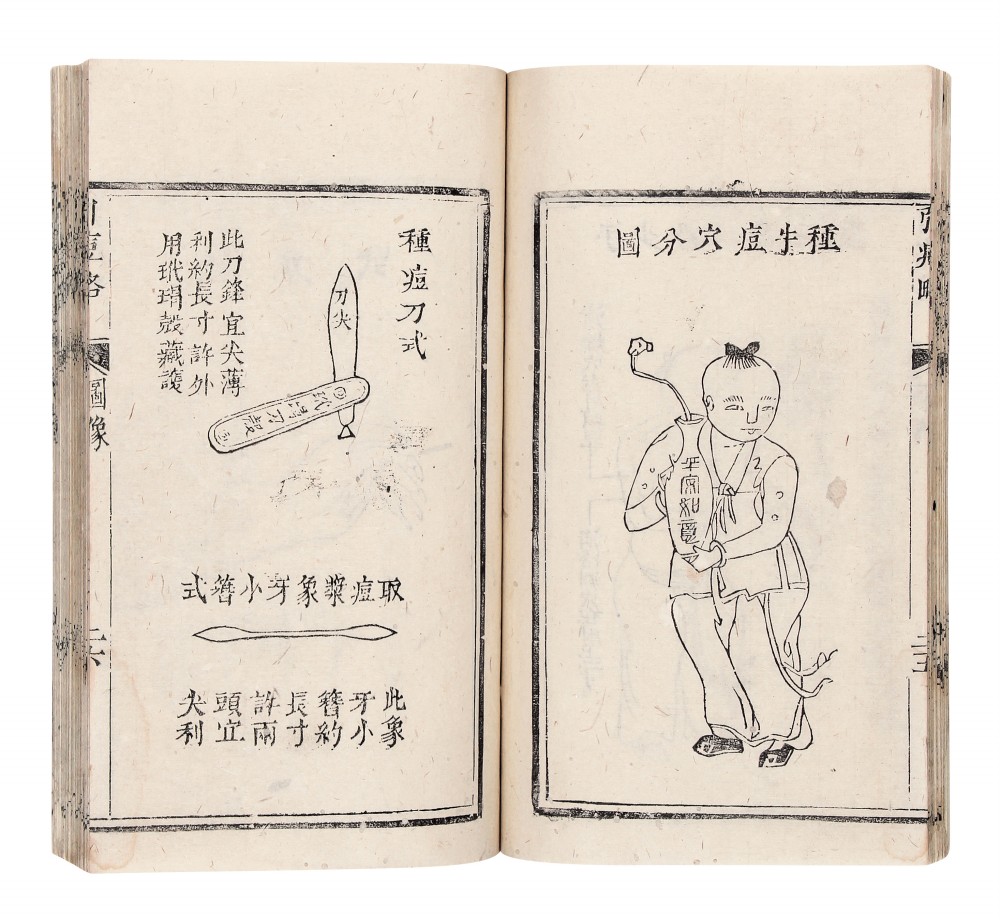 引痘略
種牛痘穴分圖
平安如意
種痘刀式
刀尖
玳瑁刀殼
此刀鋒宜尖薄
利約長寸許外
用玳瑁殼藏護
取痘漿象牙小簪式
此象
牙小
簪約
長寸
許兩
頭宜
尖利
引痘略
圖像
二六